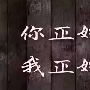 你正好
我正好